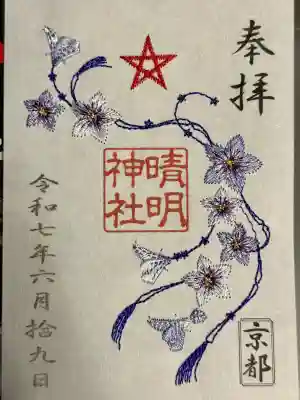 奉拝
晴明
神社
京都
令和七年六月拾九日